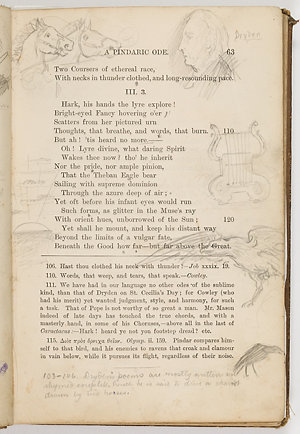 Dryden
A PINDARIC ODE. 63
Two Coursers of ethereal race,
With necks in thunder clothed, and long-resounding pace.
III. 3.
Hark, his hands the lyre explore!
Bright-eyed Fancy hovering o'er
Scatters from her pictured urn
Thoughts, that breathe, and words, that burn. 110
But ah! 'tis heard no more.—
Oh! Lyre divine, what daring Spirit
Wakes thee now? tho' he inherit
Nor the pride, nor ample pinion,
That the Theban Eagle bear
Sailing with supreme dominion
Through the azure deep of air;
Yet oft before his infant eyes would run
Such forms, as glitter in the Muse's ray
With orient hues, unborrowed of the Sun; 120
Yet shall he mount, and keep his distant way
Beyond the limits of a vulgar fate,
Beneath the Good how far—but far above the Great.
106. Hast thou clothed his neck with thunder?—Job xxxix. 19.
110. Words, that weep, and tears, that speak.—Cowley.
111. We have had in our language no other odes of the sublime
kind, than that of Dryden on St. Cecilia's Day; for Cowley (who
had his merit) yet wanted judgment, style, and harmony, for such
a task. That of Pope is not worthy of so great a man. Mr. Mason
indeed of late days has touched the true chords, and with a
masterly hand, in some of his Choruses,—above all in the last of
Caractacus:—Hark! heard ye not yon footstep dread? etc.
115. Διὸς πρὸς ὄρνιχα θεῖον. Olymp. ii. 159. Pindar compares him-
self to that bird, and his enemies to ravens that croak and clamour
in vain below, while it pursues its flight, regardless of their noise.
105-106. Dryden's poems are mostly written in
rhymed couplets, hence he is said to drive a chariot
drawn by two horses.